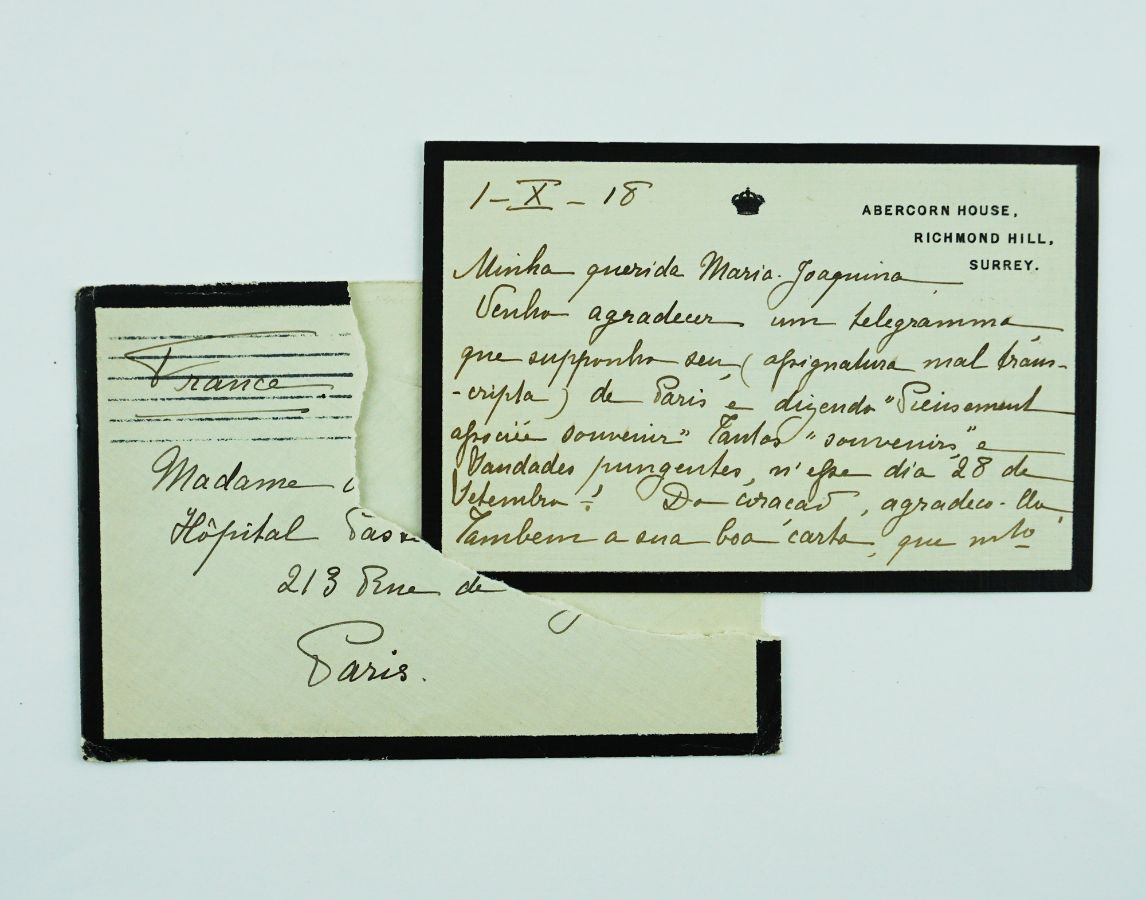 1-X-18
ABERCORN HOUSE,
RICHMOND HILL,
SURREY.
Minha querida Maria-Joaquina
Venho agradecer um telegramma
que supponho seu (assignatura mal trans-
-cripta) de Paris e dizendo "Pieusement
associée souvenir" Tantos "souvenirs" e
Saudades pungentes, n'esse dia 28 de
Setembro! Do coração, agradeço-lho
Tambem a sua boa carta, que mto
France
Madame
Hôpital
213 Rue de
Paris.